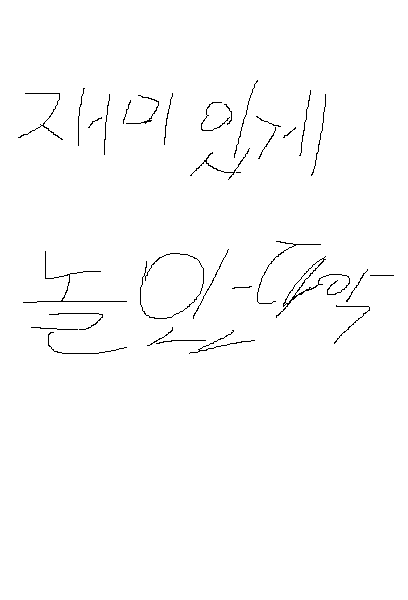 재미있게
놀았